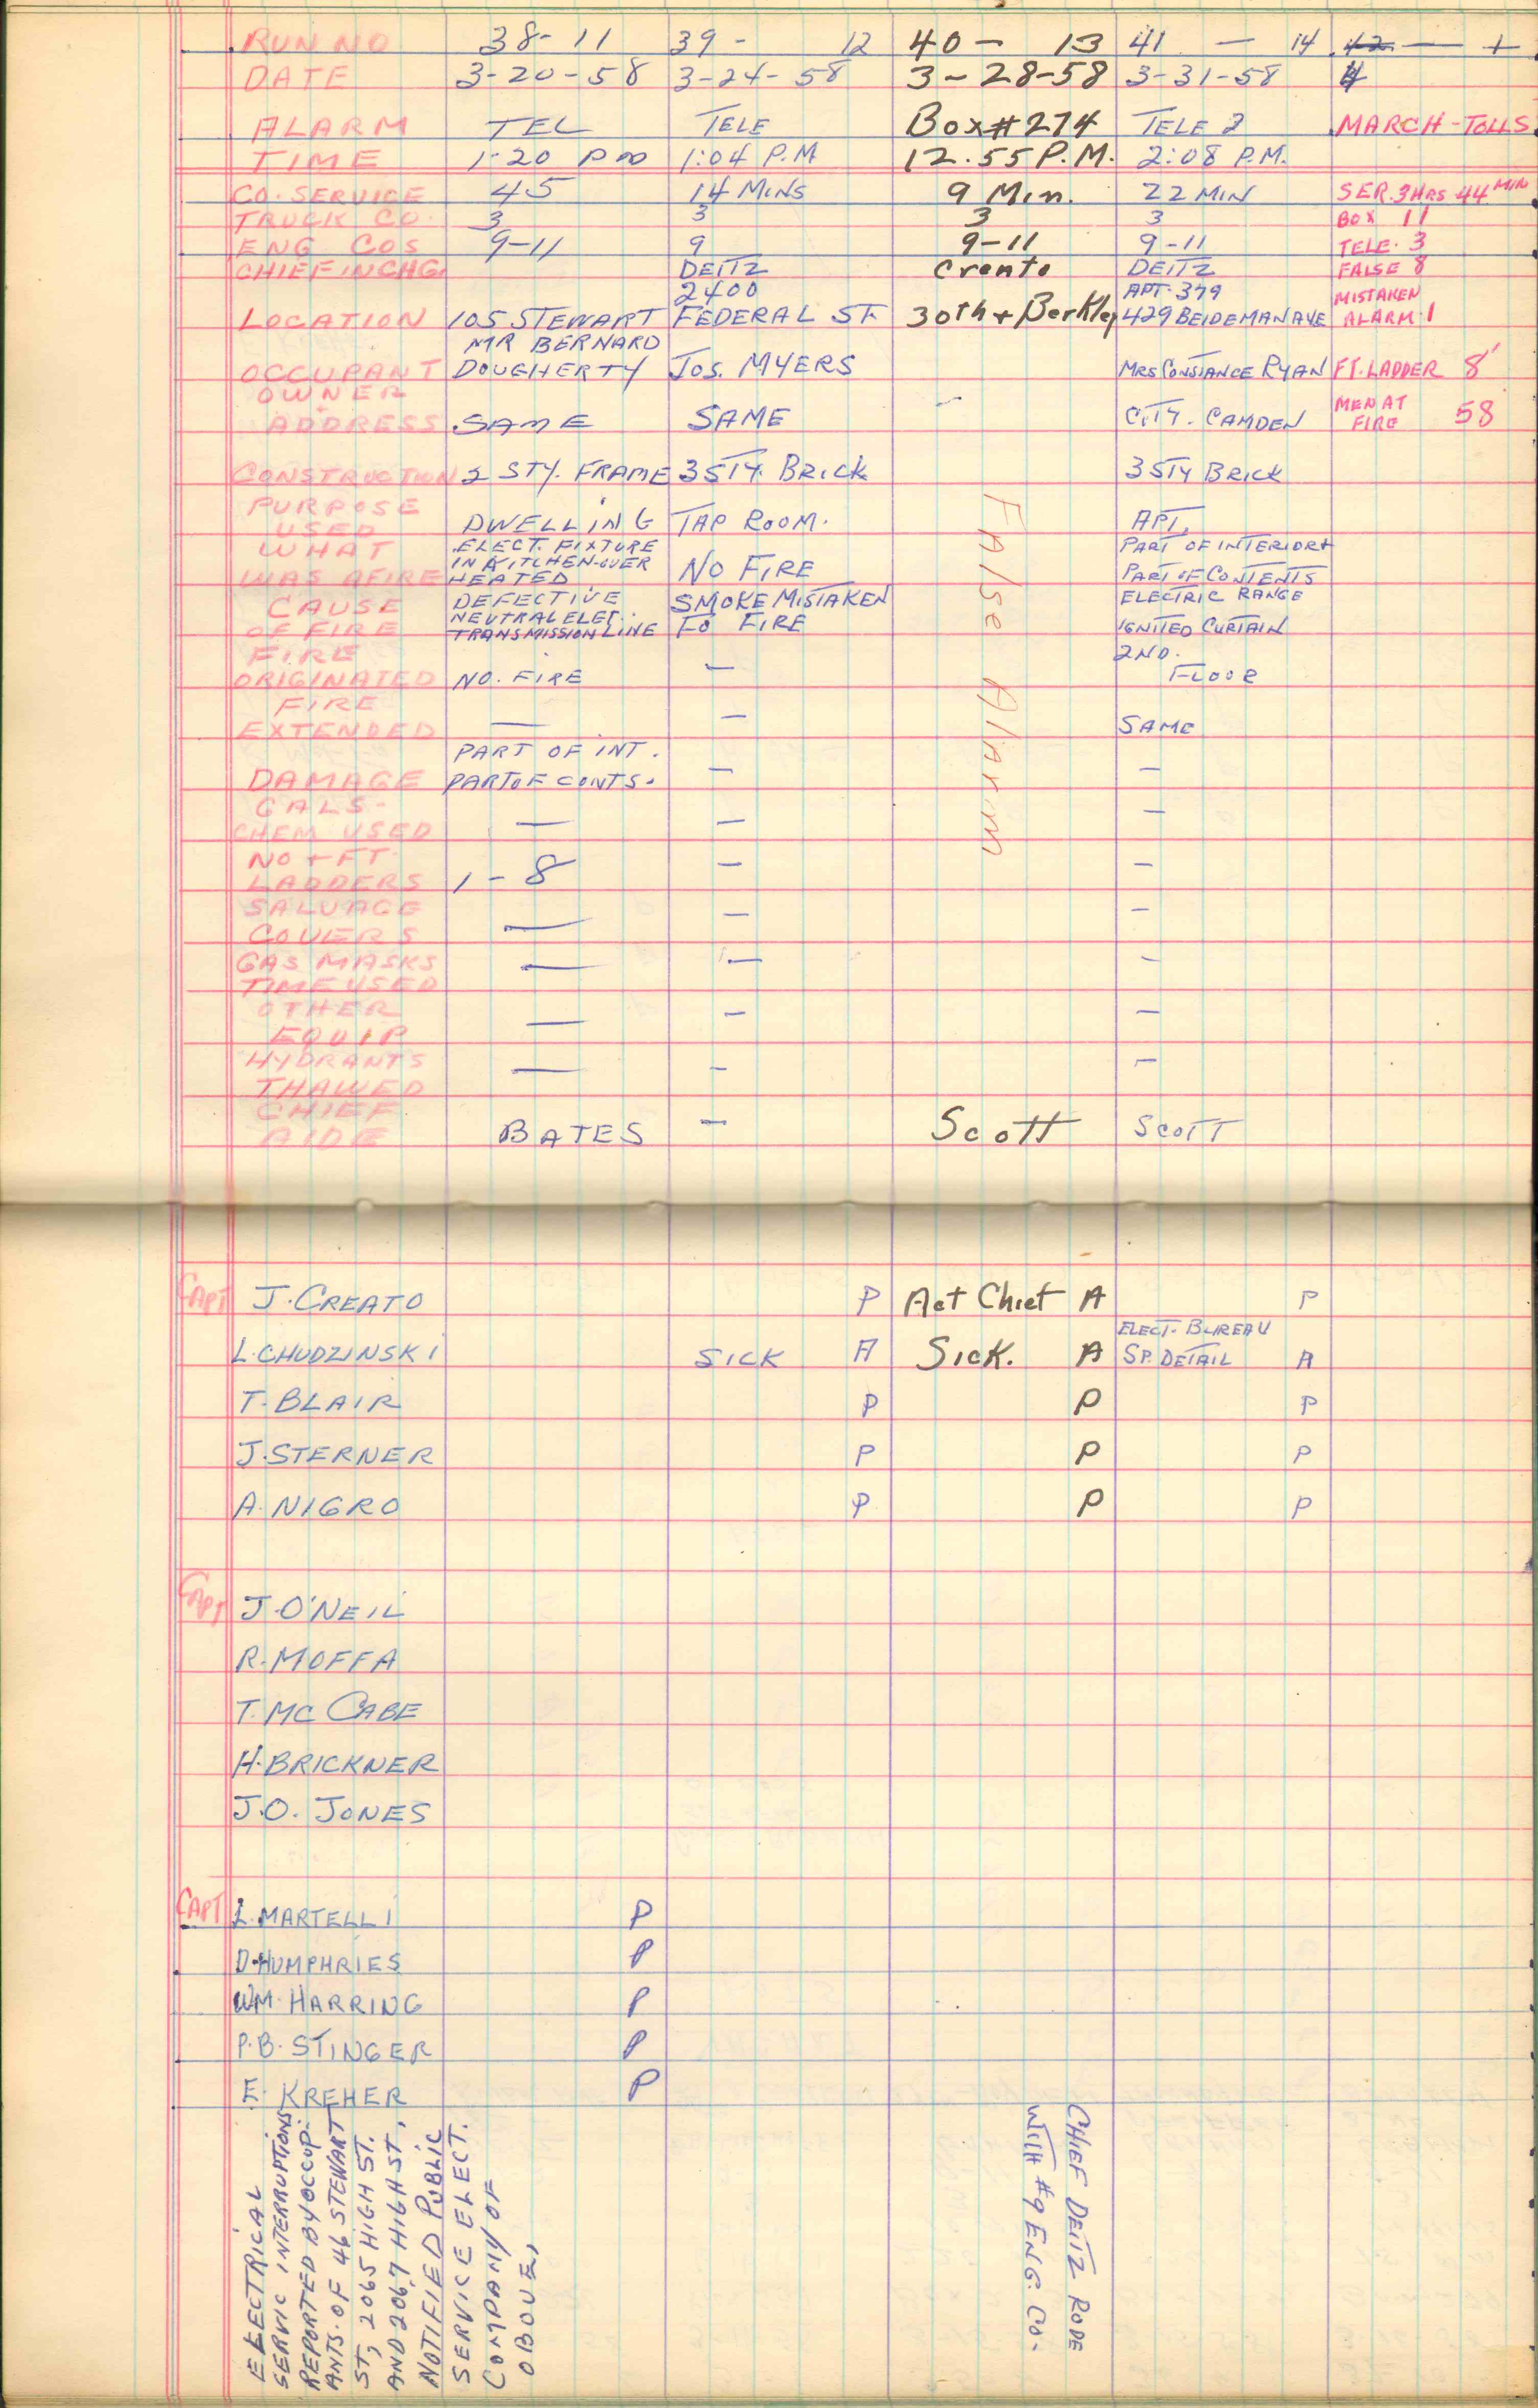 RUN NO 38-11 39- 12 40- 13 41 - 14 42 - +
DATE 3-20-58 3-24-58 3-28-58 3-31-58
ALARM TEL TELE Box#274 TELE 2 MARCH-TOLLS
TIME 1-20 PM 1:04 P.M 12.55 P.M. 2:08 P.M.
CO. SERVICE 45 14 MINS 9 Min. 22 MIN SER. 3 HRS 44 MIN
TRUCK CO. 3 3 3 3 BOX 11
ENG COS 9-11 9 9-11 9-11 TELE. 3
CHIEF IN CHG. DEITZ Creato DEITZ FALSE 8
2400 APT. 379 MISTAKEN
LOCATION 105 STEWART FEDERAL ST. 30th + Berkley 429 BEIDEMAN AVE ALARM. 1
MR BERNARD
OCCUPANT DOUGHERTY JOS. MYERS MRS CONSTANCE RYAN FT. LADDER 8'
OWNER
ADDRESS SAME SAME - CITY. CAMDEN MEN AT FIRE 58
CONSTRUCTION 2 STY. FRAME 3 STY. BRICK 3 STY BRICK
PURPOSE
USED DWELLING TAP ROOM. APT.
WHAT ELECT. FIXTURE PART OF INTERIOR +
IN KITCHEN-OVER
WAS AFIRE HEATED NO FIRE PART OF CONTENTS
CAUSE DEFECTIVE SMOKE MISTAKEN ELECTRIC RANGE
NEUTRAL ELEC.
OF FIRE TRANSMISSION LINE FO FIRE IGNITED CURTAIN
FIRE 2ND.
ORIGINATED NO. FIRE - FLOOR
FIRE
EXTENDED - - SAME
PART OF INT.
DAMAGE PART OF CONTS. - -
GALS-
CHEM USED - - -
NO + FT.
LADDERS 1 - 8 - -
SALVAGE
COVERS - - -
GAS MASKS - - -
TIME USED
OTHER
EQUIP - - -
HYDRANTS
THAWED - - -
CHIEF
AIDE BATES - Scott SCOTT
False Alarm
CAPT J. CREATO P Act Chief A P
L. CHUDZINSKI SICK A SICK. A ELECT. BUREAU SP. DETAIL A
T. BLAIR P P P
J. STERNER P P P
A. NIGRO P P P
CAPT J. O'NEIL
R. MOFFA
T. MC CABE
H. BRICKNER
J.O. JONES
CAPT L. MARTELLI P
D. HUMPHRIES P
WM. HARRING P
P.B. STINGER P
E. KREHER P
ELECTRICAL
SERVIC INTERRUPTIONS
REPORTED BY OCCUP-
ANTS. OF 46 STEWART
ST, 2065 HIGH ST.
AND 2067 HIGH ST,
NOTIFIED PUBLIC
SERVICE ELECT.
COMPANY OF
OBOVE,
CHIEF DEITZ RODE
WITH #9 ENG. CO-